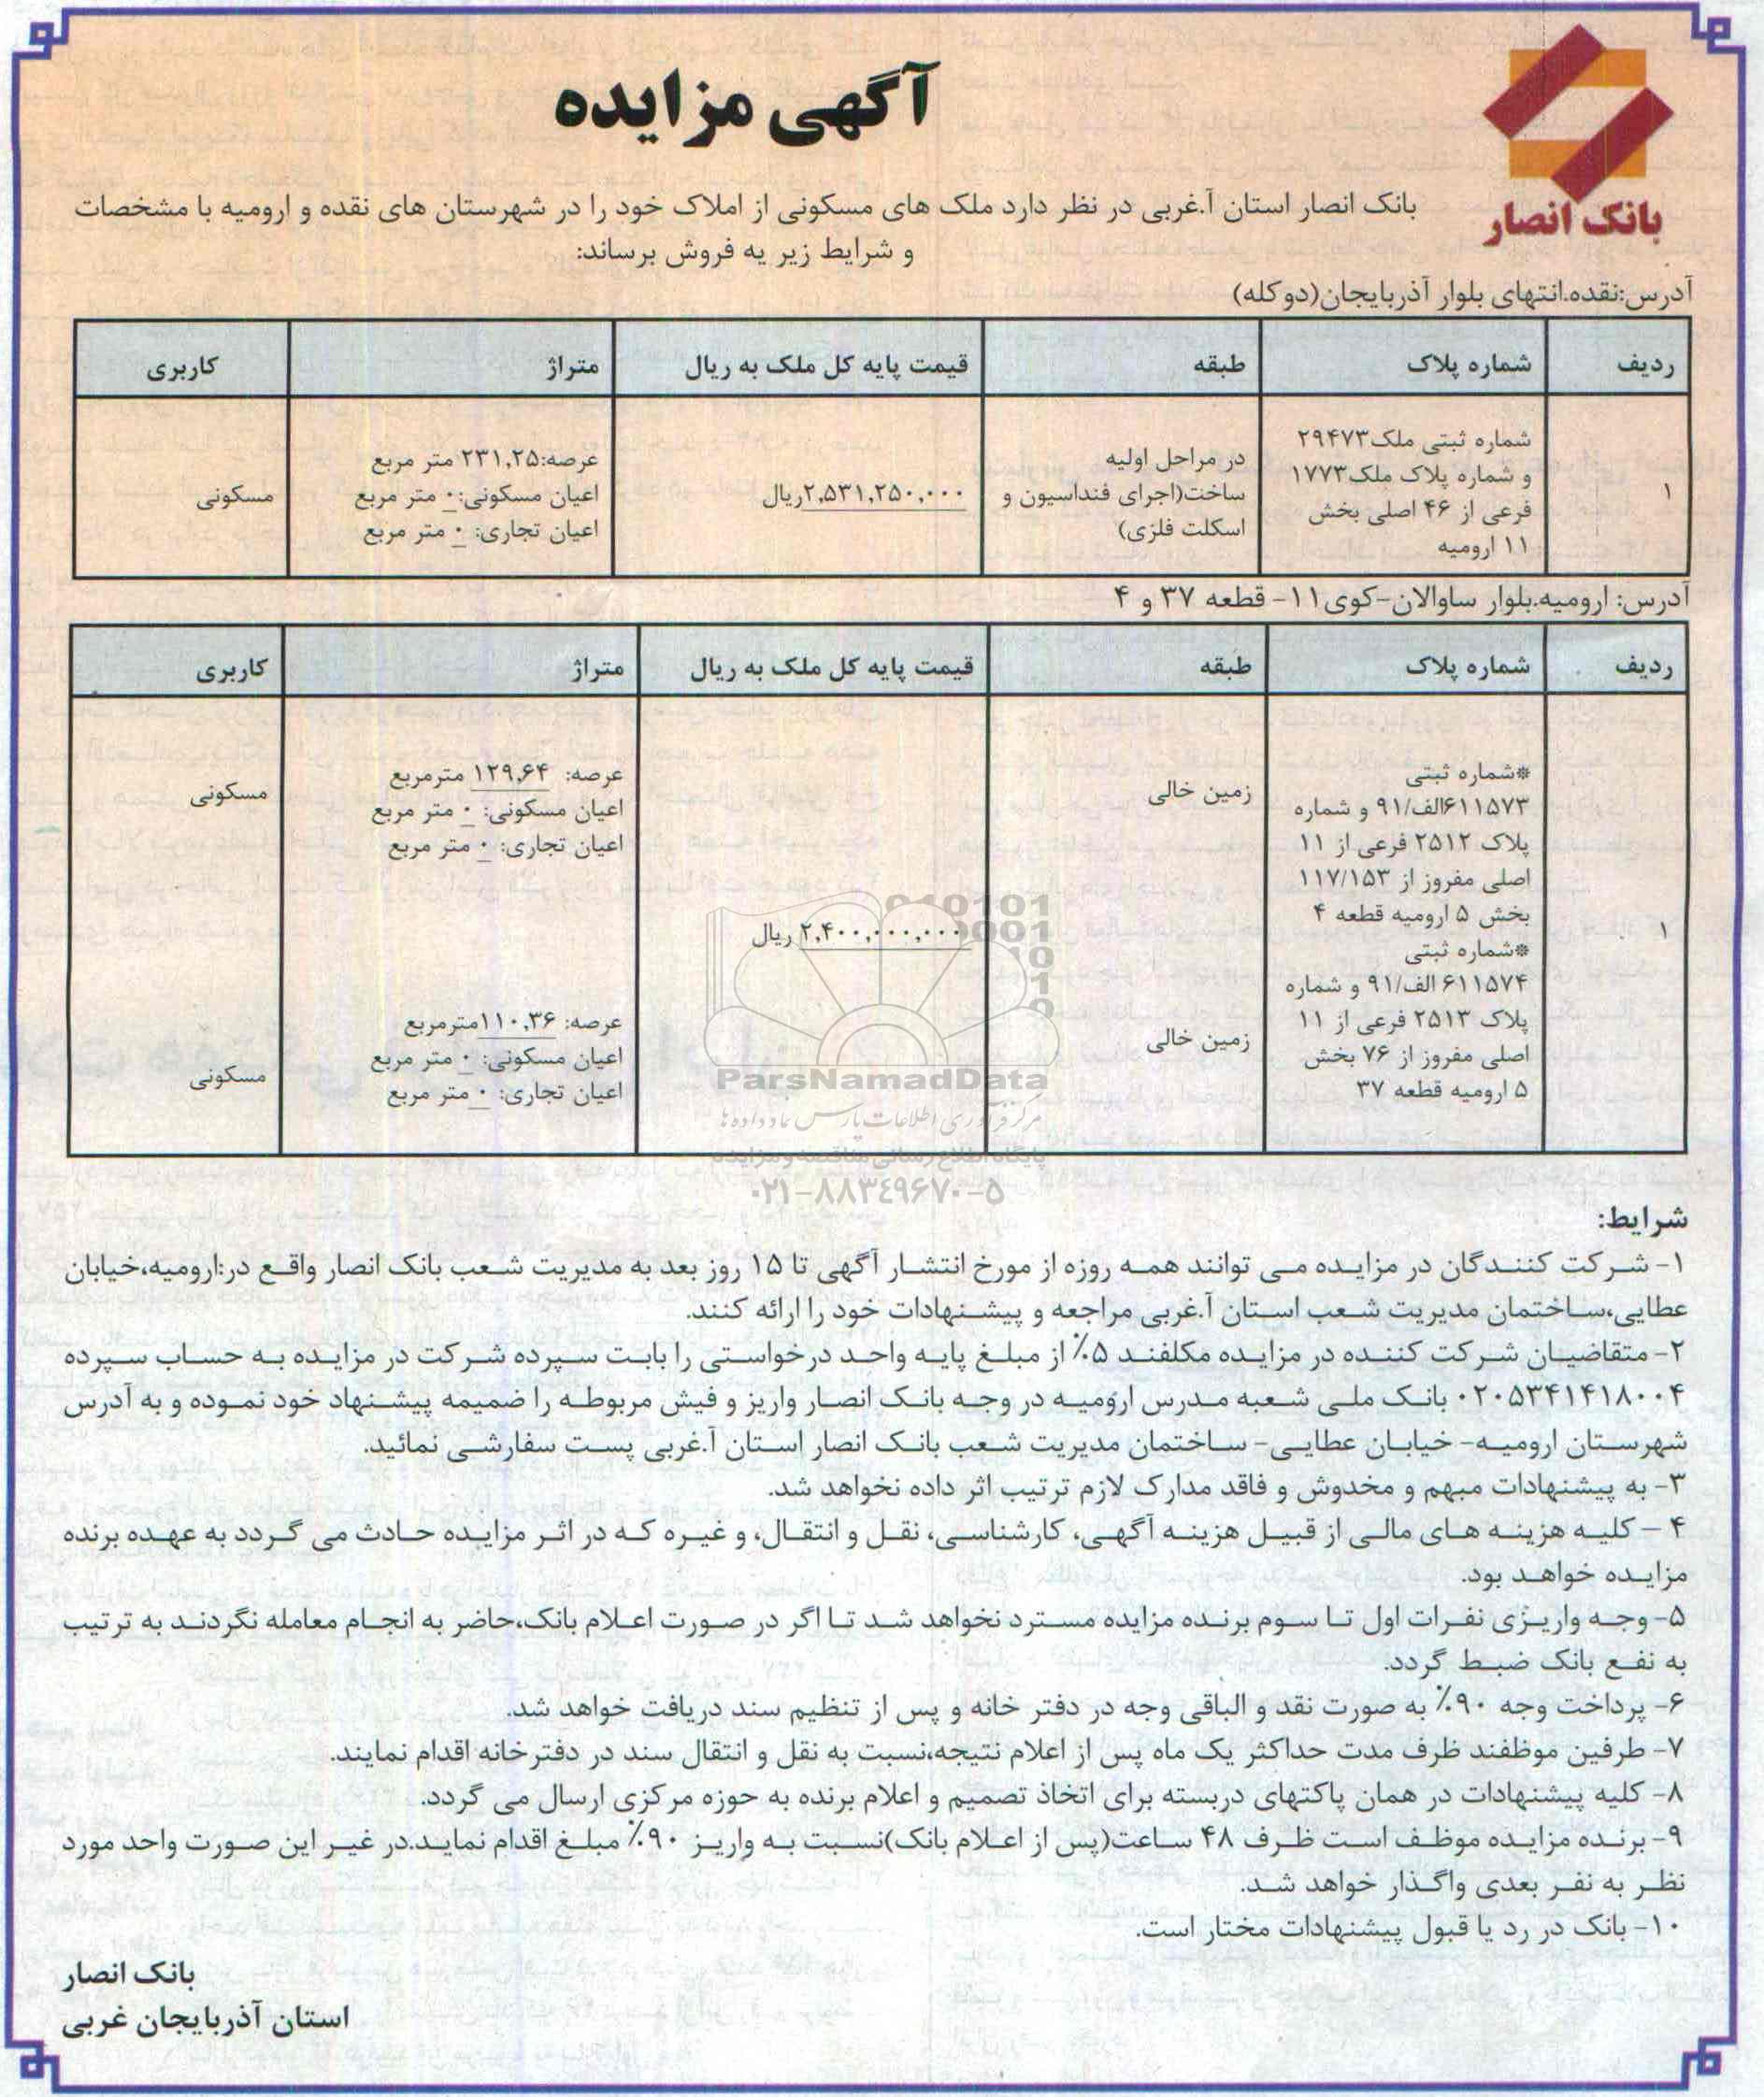 آگهی مزایده
بانک انصار
بانک انصار استان آ.غربی در نظر دارد ملک های مسکونی از املاک خود را در شهرستان های نقده و ارومیه با مشخصات
و شرایط زیر یه فروش برساند:
آدرس:نقده.انتهای بلوار آذربایجان(دو کله)
ردیف شماره پلاک طبقه قیمت پایه کل ملک به ریال متراژ کاربری
۱
شماره ثبتی ملک۲۹۴۷۳
و شماره پلاک ملک۱۷۷۳
فرعی از ۴۶ اصلی بخش
۱۱ ارومیه
در مراحل اولیه
ساخت(اجرای فنداسیون و
اسکلت فلزی)
۲,۵۳۱,۲۵۰,۰۰۰ریال
عرصه:۲۳۱,۲۵ متر مربع
اعیان مسکونی:۰ متر مربع
اعیان تجاری: ۰ متر مربع
مسکونی
آدرس: ارومیه.بلوار ساوالان-کوی۱۱- قطعه ۳۷ و ۴
ردیف شماره پلاک طبقه قیمت پایه کل ملک به ریال متراژ کاربری
۱
*شماره ثبتی
۶۱۱۵۷۳الف/۹۱ و شماره
پلاک ۲۵۱۲ فرعی از ۱۱
اصلی مفروز از ۱۱۷/۱۵۳
بخش ۵ ارومیه قطعه ۴
*شماره ثبتی
۶۱۱۵۷۴ الف/۹۱ و شماره
پلاک ۲۵۱۳ فرعی از ۱۱
اصلی مفروز از ۷۶ بخش
۵ ارومیه قطعه ۳۷
زمین خالی
زمین خالی
۲,۴۰۰,۰۰۰,۰۰۰ ریال
عرصه: ۱۲۹,۶۴ مترمربع
اعیان مسکونی: ۰ متر مربع
اعیان تجاری: ۰ متر مربع
عرصه: ۱۱۰,۳۶مترمربع
اعیان مسکونی: ۰ متر مربع
اعیان تجاری: ۰ متر مربع
مسکونی
مسکونی
ParsNamadData
مرکز فرآوری اطلاعات پارس نماد داده ها
پایگاه اطلاع رسانی مناقصه و مزایده
۰۲۱-۸۸۳۴۹۶۷۰-۵
شرایط:
۱- شرکت کنندگان در مزایده می توانند همه روزه از مورخ انتشار آگهی تا ۱۵ روز بعد به مدیریت شعب بانک انصار واقع در:ارومیه،خیابان
عطایی،ساختمان مدیریت شعب استان آ.غربی مراجعه و پیشنهادات خود را ارائه کنند.
۲- متقاضیان شرکت کننده در مزایده مکلفند ۵٪ از مبلغ پایه واحد درخواستی را بابت سپرده شرکت در مزایده به حساب سپرده
۰۲۰۵۳۴۱۴۱۸۰۰۴ بانک ملی شعبه مدرس ارومیه در وجه بانک انصار واریز و فیش مربوطه را ضمیمه پیشنهاد خود نموده و به آدرس
شهرستان ارومیه- خیابان عطایی- ساختمان مدیریت شعب بانک انصار استان آ.غربی پست سفارشی نمائید.
۳- به پیشنهادات مبهم و مخدوش و فاقد مدارک لازم ترتیب اثر داده نخواهد شد.
۴ – کلیه هزینه های مالی از قبیل هزینه آگهی، کارشناسی، نقل و انتقال، و غیره که در اثر مزایده حادث می گردد به عهده برنده
مزایده خواهد بود.
۵- وجه واریزی نفرات اول تا سوم برنده مزایده مسترد نخواهد شد تا اگر در صورت اعلام بانک،حاضر به انجام معامله نگردند به ترتیب
به نفع بانک ضبط گردد.
۶- پرداخت وجه ۹۰٪ به صورت نقد و الباقی وجه در دفتر خانه و پس از تنظیم سند دریافت خواهد شد.
۷- طرفین موظفند ظرف مدت حداکثر یک ماه پس از اعلام نتیجه،نسبت به نقل و انتقال سند در دفترخانه اقدام نمایند.
۸- کلیه پیشنهادات در همان پاکتهای دربسته برای اتخاذ تصمیم و اعلام برنده به حوزه مرکزی ارسال می گردد.
۹- برنده مزایده موظف است ظرف ۴۸ ساعت(پس از اعلام بانک)نسبت به واریز ۹۰٪ مبلغ اقدام نماید.در غیر این صورت واحد مورد
نظر به نفر بعدی واگذار خواهد شد.
۱۰- بانک در رد یا قبول پیشنهادات مختار است.
بانک انصار
استان آذربایجان غربی